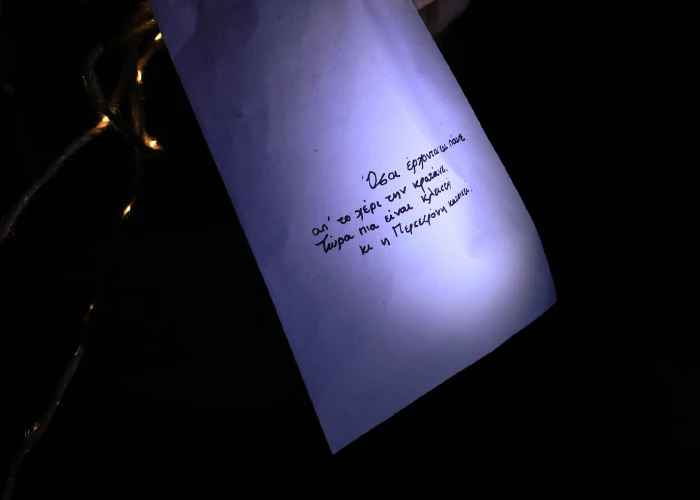 Όσοι έρχονται και πάνε
απ' το χέρι την κρατάνε.
Τώρα πια είναι κλειστή
κι η Περσεφόνη